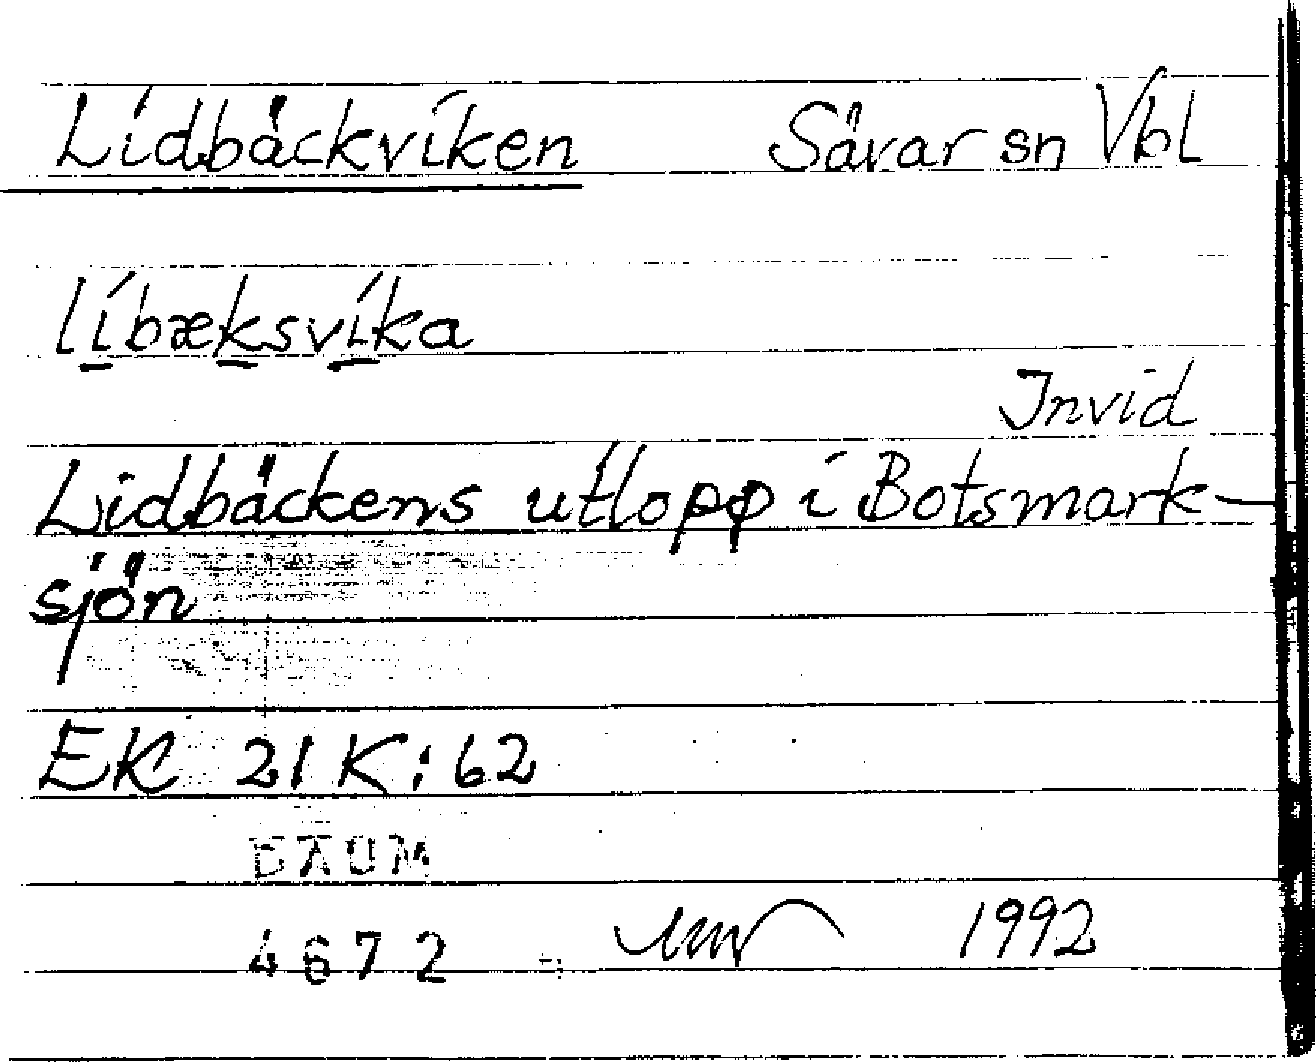 Lidbäckviken Sävar sn Vbl
libæksvika
Invid
Lidbäckens utlopp i Botsmark-
sjön
EK 21K:62
DAUM
4672 1992